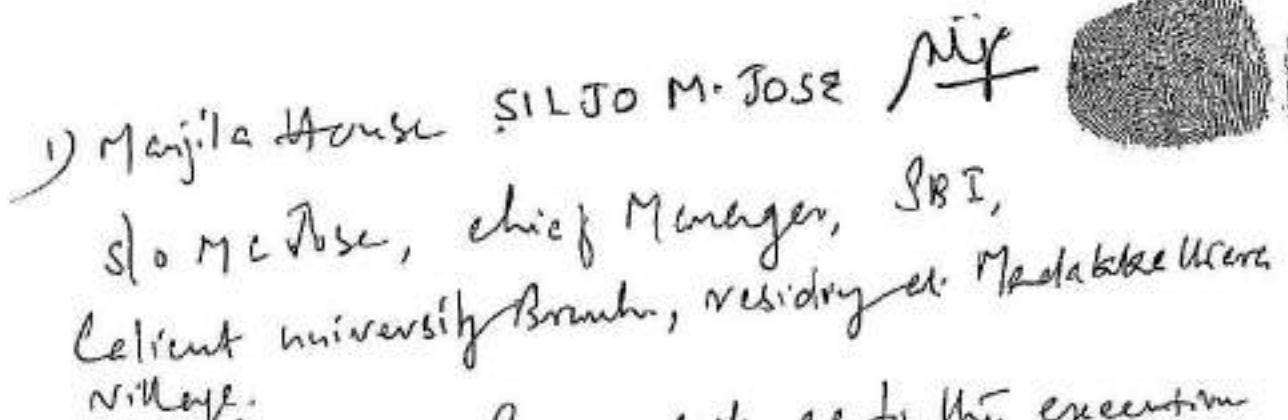 1) Manjila House SILJO M. JOSE
S/o M C Jose, chief Manager, SBI,
Calicut university Branch, residing at
village.
as to the execution